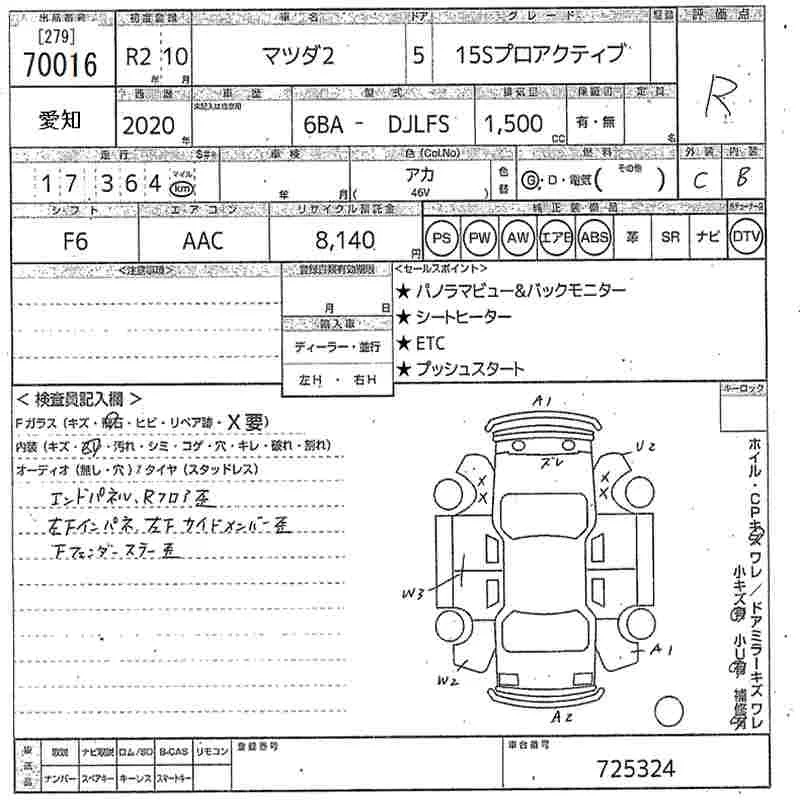 出品番号 初度登録 車名 ドア グレード 評価点
[279]
70016 R2年 10月 マツダ2 5 15Sプロアクティブ R
西暦 車歴 型式 排気量 保証書 定員
愛知 2020年 6BA - DJLFS 1,500cc 有・無 名
走行 車検 色(Col.No) 燃料 その他 外装 内装
17 364 マイル km 年 月 アカ 46V 色替 G・D・電気( ) C B
シフト エアコン リサイクル預託金 純正装備品
F6 AAC 8,140円 PS PW AW エアB ABS 革 SR ナビ DTV
<注意事項> 登録書類有効期限 <セールスポイント>
月 日
★ パノラマビュー&バックモニター
輸入車
★ シートヒーター
ディーラー・並行
★ ETC
左H ・ 右H
★ プッシュスタート
ルーロック
<検査員記入欄>
Fガラス(キズ・飛石・ヒビ・リペア跡・X要)
内装(キズ・汚れ・シミ・コゲ・穴・キレ・破れ・割れ)
オーディオ(無し・穴)/タイヤ(スタッドレス)
エンドパネル、Rフロア歪
左下インパネ、左下サイドメンバー歪
A1
ズレ
U2
X X
X X
W3
W2
A1
A2
ホイル・CPキズ ワレ/ドアミラーキズ ワレ
小キズ有 小U有 補修有
取説 ナビ取説 ロム/SD B-CAS リモコン 登録番号 車台番号
ナンバー スペアキー キーレス スマートキー
725324